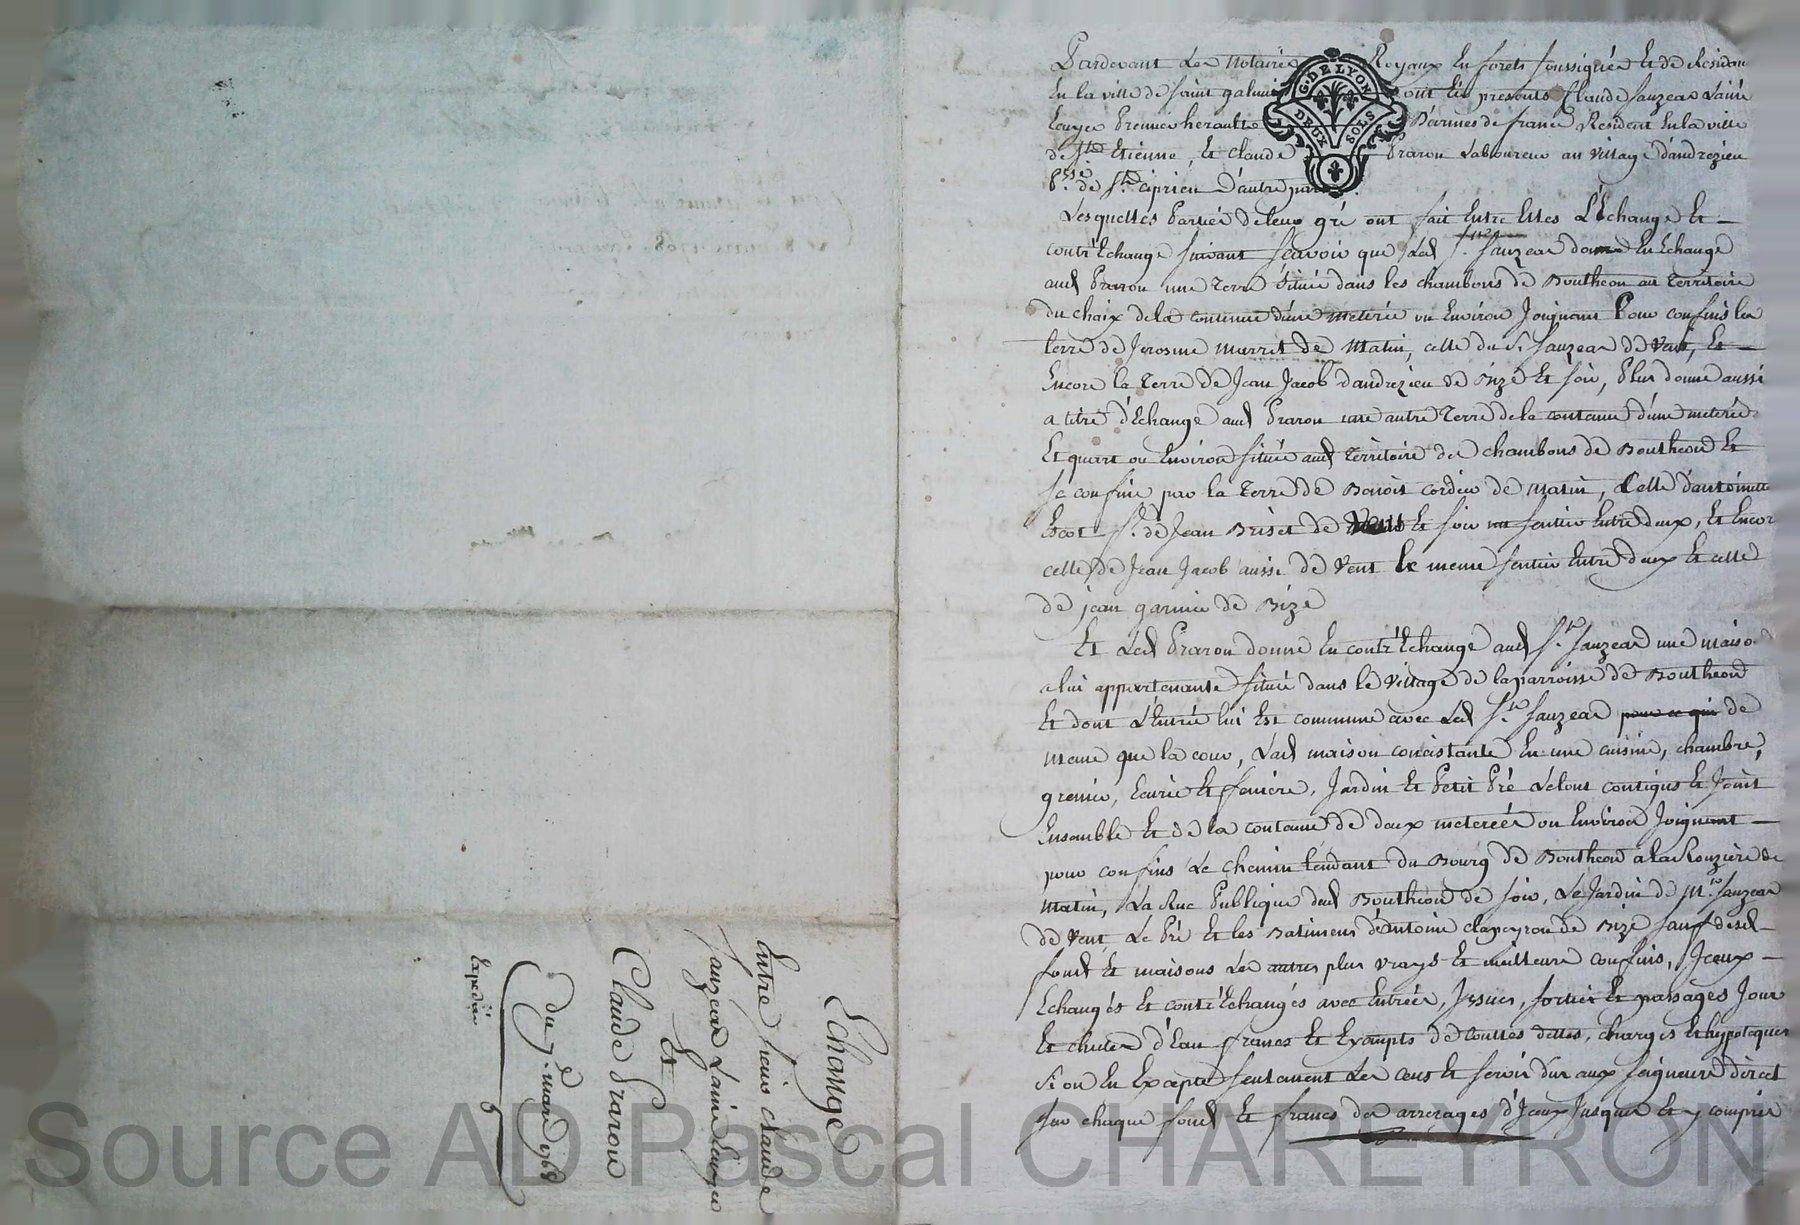 Pardevant Les Notaires Royaux En forets soussignés Et de Residence
En la ville de saint galmier ont Etés presents Claude Sauzeas Lainé
Ecuyer Premier heraulte D'armes de france Resident En la ville
de St Etienne, Et Claude Praron Laboureur au Village d'andrezieu
Psse de St Ciprien D'autre part
G. DE LYON
DEUX SOLS
Lesquelles Parties de leur gré ont fait Entre Elles L'Echange Et
contr'Echange suivant scavoir que Led Sr. Sauzeas donne En Echange
aud Praron une Terre située dans les chambons de Bouthéon au Territoire
du chaix de la contenue d'une meterée ou Environ Joignant Pour confins les
terre de Jerosme murret de Matin, celle du Sr. Sauzeas de Vent, Et
Encore la Terre de Jean Jacob d'andrezieu de Bize Et soir, Plus donne aussi
a titre d'Echange aud Praron une autre Terre de la contenue d'une meterée
Et quart ou Environ située aud Territoire des chambons de Bouthéon Et
se confine par la Terre de Benoit cordier de matin, Celle d'antoinette
Escot Vve de Jean Briset de Vent Et soir un sentier Entre deux, Et Encor
celle de Jean Jacob aussi de Vent le meme sentier Entre deux Et celle
de jean garnier de Bize
Et Led Praron donne En contr'Echange aud Sr. Sauzeas une maison
a lui appartenante située dans le Village de la parroisse de Bouthéon
Et dont L'Entrée lui Est commune avec Led Sr. Sauzeas pour ce qui de
meme que la cour, Lad maison concistante En une cuisine, chambre,
grenier, Ecurie Et feniere, Jardin Et Petit Pré Le tout contigus Et Joint
Ensemble Et de la contenue de deux meterées ou Environ Joignant
pour confins Le chemin tendant du Bourg de Bouthéon a la Rouzière de
Matin, La Rue Publique dud Bouthéon de soir, Le Jardin de Mr. Sauzeas
de Vent Le Pré Et les Batimens d'antoine clapeyron de Bize sauf desd
fond Et maisons Les autres plus vrays Et meilleurs confins, Iceux
Echangés Et contr'Echangés avec Entrées, Issues, sorties Et passages Jours
Et chutes d'Eau francs Et Exempts de touttes dettes, charges Et hypoteques
Si on En Excepte seulement Les cens Et servis dus aux seigneurs direct
sur chaque fond Et francs des arrerages d'Iceux Jusques Et y compris
Echange
Entre sieur claude
Sauzeas Lainé Ecuyer
Et
Claude Praron
du 7. mars 1768
Expedié
Source AD Pascal CHAREYRON